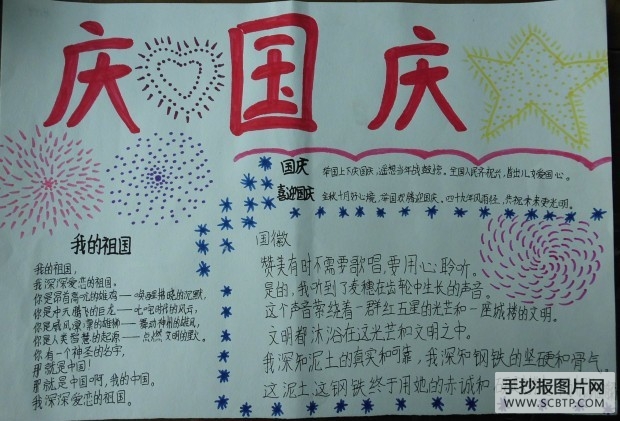 庆国庆
国庆
举国上下庆国庆,遥想当年战鼓擂。全国人民齐祝兴,献出儿女爱国心。
喜迎国庆
金秋十月好心境,举国欢腾迎国庆。四十九年风雨经,共祝未来更光明。
我的祖国
我的祖国,
我深深爱恋的祖国。
你是昂首高吭的雄鸡——唤醒拂晓的沉默,
你是冲天腾飞的巨龙——叱咤时代的风云,
你是威风凛凛的雄狮——舞动神州的雄风,
你是人类智慧的起源——点燃文明的
你有一个神圣的名字,
那就是中国!
那就是中国啊,我的中国。
我深深爱恋的祖国。
国徽
赞美有时不需要歌唱,要用心聆听。
是的,我听到了麦穗在齿轮中生长的声音。
这个声音萦绕着一群红五星的光芒和一座城楼的文明。
文明都沐浴在这光芒和文明之中。
我深知泥土的真实和可靠,我深知钢铁的坚硬和骨气。
这泥土这钢铁终于用她的赤诚和
手抄报图片网
WWW.SCBTP.COM